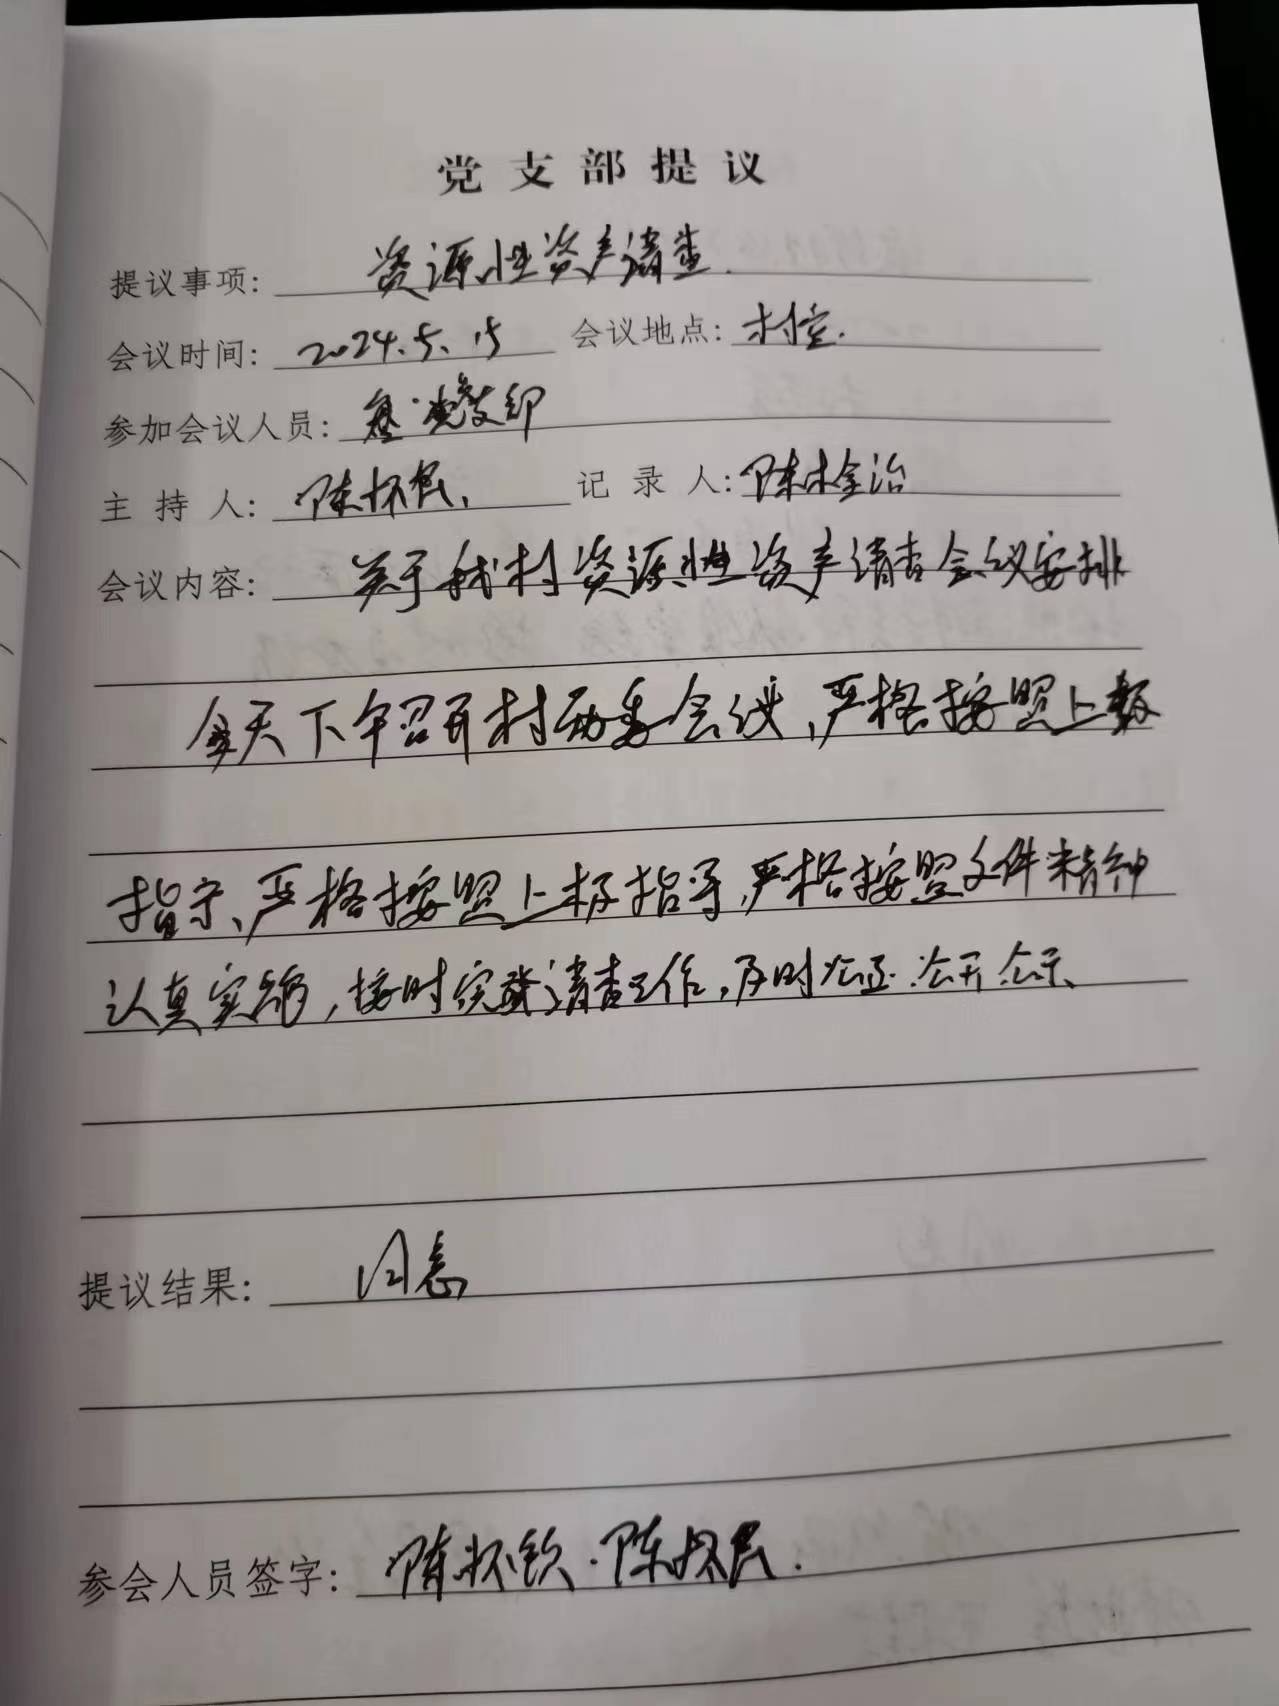 党支部提议
提议事项: 资源性资产清查.
会议时间: 2024.5.15 会议地点: 村室.
参加会议人员: 党支部
主持人: 陈怀民. 记录人: 陈栓治
会议内容: 关于我村资源性资产清查会议安排
今天下午召开村两委会议,严格按照上级
指示、严格按照上级指导,严格按照文件精神
认真实施,按时完成清查工作,及时公正.公开.公示、
提议结果: 同意
参会人员签字: 陈怀钦.陈怀民.